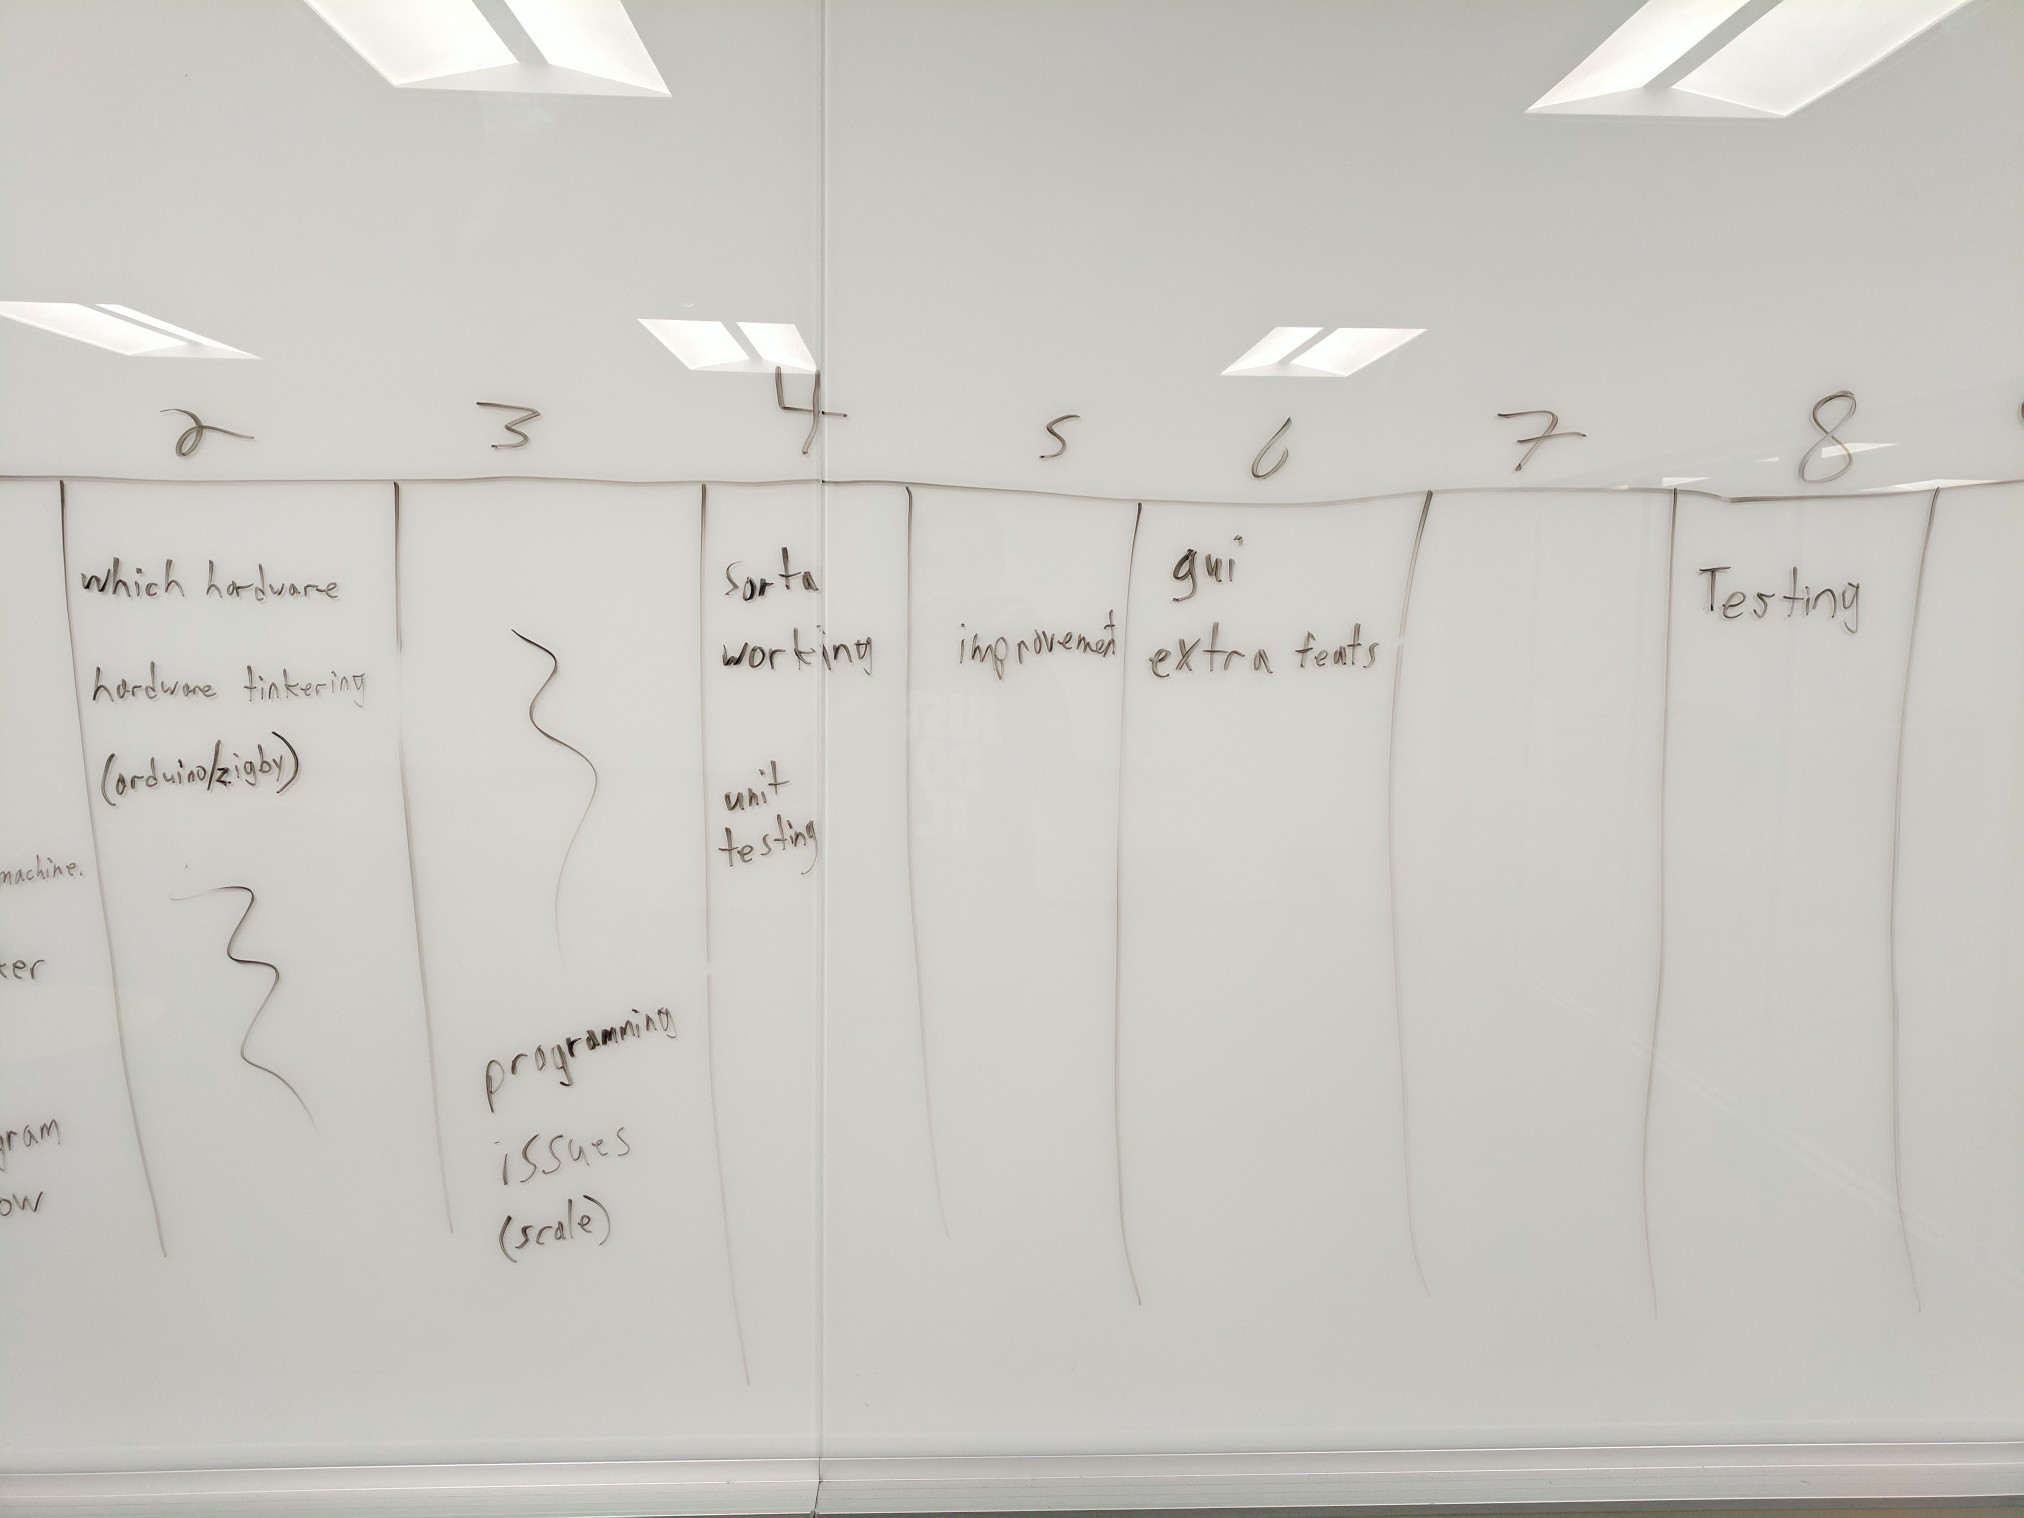 2 3 4 5 6 7 8
machine.
which hardware
hardware tinkering
(arduino/zigby)
programming
issues
(scale)
sorta
working
unit
testing
improvement
gui
extra feats
Testing